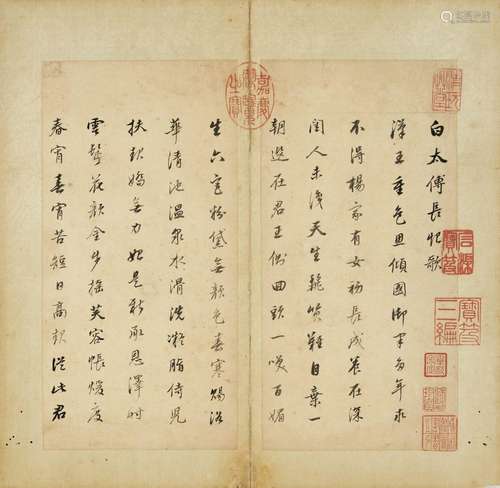 白太傅長恨歌
漢王重色思傾國御宇多年求
不得楊家有女初長成養在深
閨人未識天生麗質難自棄一
朝選在君王側回頭一笑百媚
生六宮粉黛無顏色春寒賜浴
華清池溫泉水滑洗凝脂侍兒
扶起嬌無力始是新承恩澤時
雲鬢花顏金步搖芙容帳暖度
春宵春宵苦短日高起從此君
嘉慶御覽之寶
石渠寶笈
寶笈三編